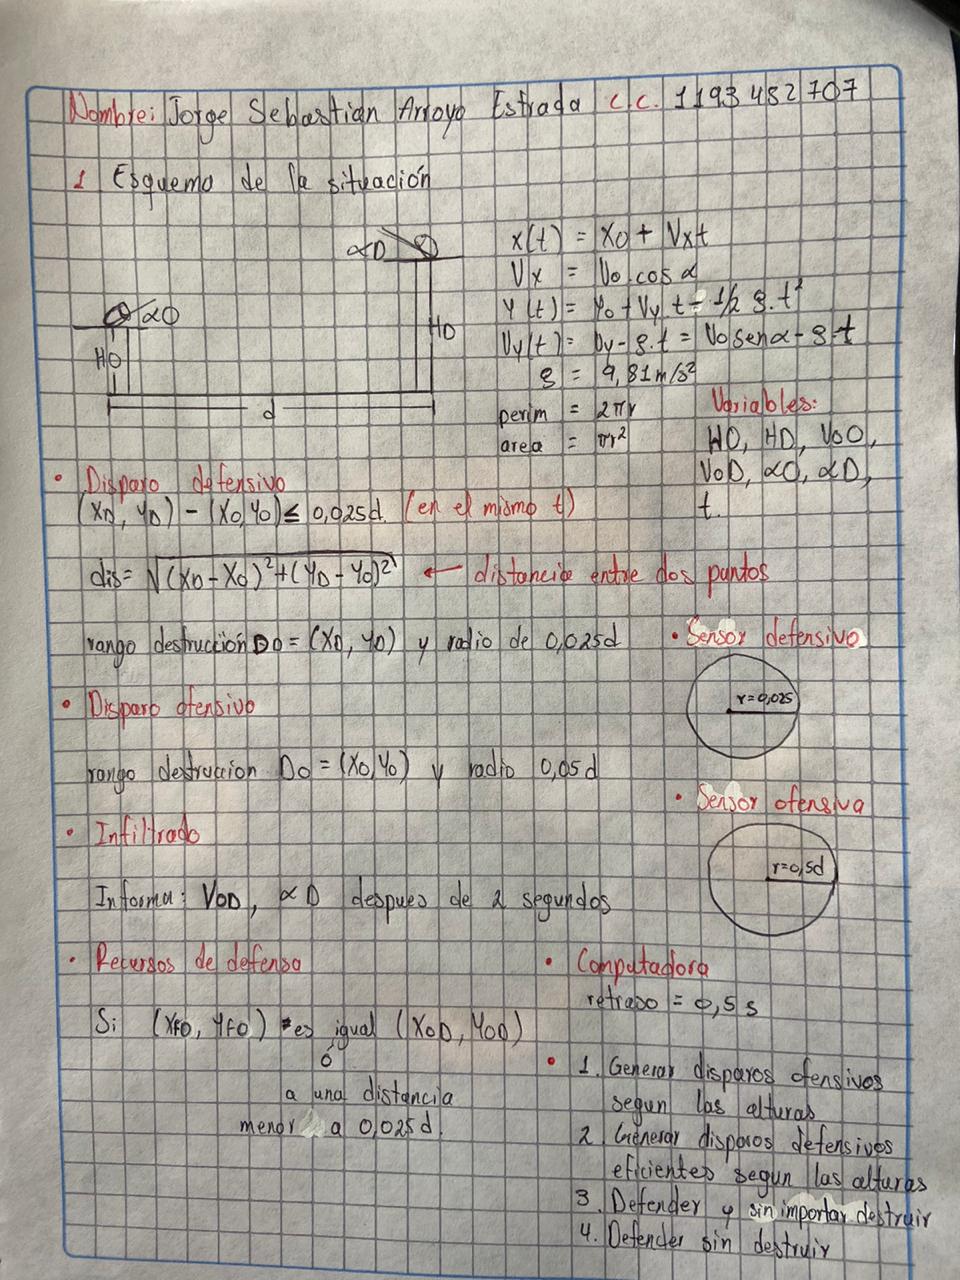 Nombre: Jorge Sebastian Arroyo Estrada c.c. 1193 482 707
1 Esquema de la situación
αD
αO
HO
HD
d
x(t) = Xo + Vxt
Vx = Vo.cos α
Y(t) = Yo + Vy t - 1/2 g.t²
Vy(t) = Vy - g.t = Vo sen α - g.t
g = 9,81 m/s²
perim = 2πr
area = πr²
Variables:
HO, HD, VoO,
VoD, αO, αD,
t.
• Disparo defensivo
(XD, YD) - (XO, YO) ≤ 0,025d. (en el mismo t)
dis = √(XD - XO)² + (YD - YO)² ← distancia entre dos puntos
rango destrucción DD = (XD, YD) y radio de 0,025d
• Sensor defensivo
r=0,025
• Disparo ofensivo
rango destruccion DO = (XO, YO) y radio 0,05d
• Sensor ofensiva
r=0,5d
• Infiltrado
Informa: VOD, αD despues de 2 segundos
• Recursos de defensa
Si (XFO, YFO) es igual (XOD, YOD)
ó
a una distancia
menor a 0,025d.
• Computadora
retraso = 0,5 s
• 1. Generar disparos ofensivos
segun las alturas
2. Generar disparos defensivos
eficientes segun las alturas
3. Defender y sin importar destruir
4. Defender sin destruir